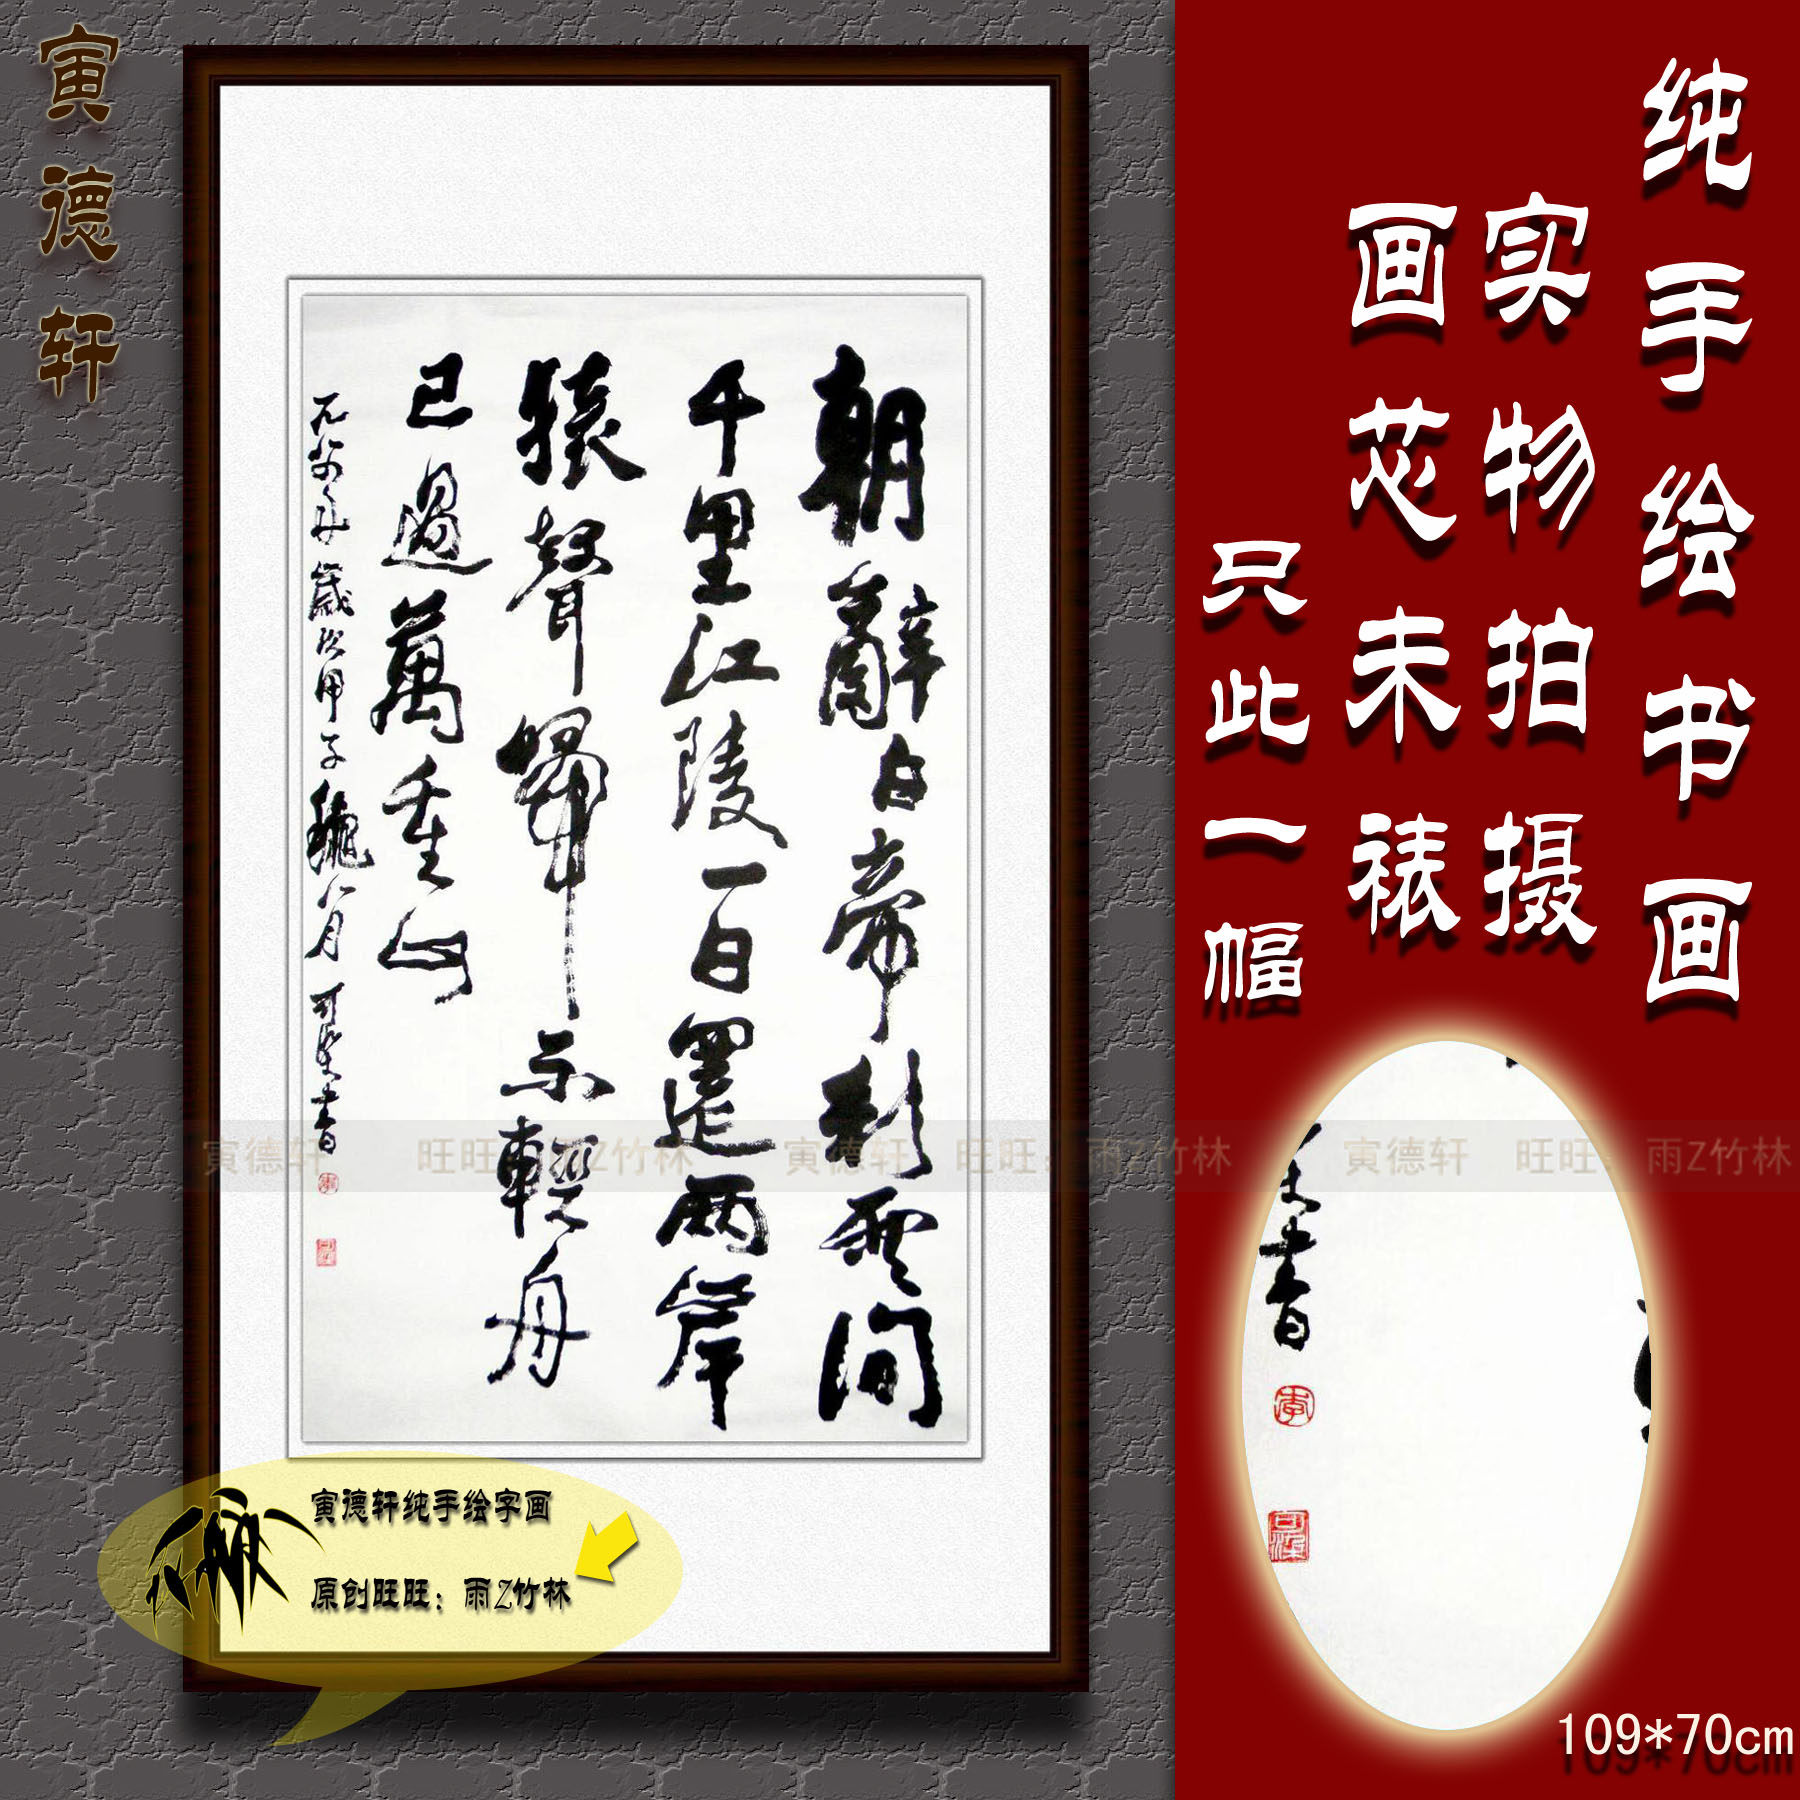 寅德轩
朝辭白帝彩雲間
千里江陵一日還兩岸
猿聲啼不輕舟
已過萬重山
一九八四年歲次甲子穐八月 可染書
李
可染
纯手绘书画
实物拍摄
画芯未裱
只此一幅
書
李
可染
寅德轩 旺旺：雨Z竹林 寅德轩 旺旺：雨Z竹林 寅德轩 旺旺：雨Z竹林
寅德轩纯手绘字画
原创旺旺：雨Z竹林
109*70cm